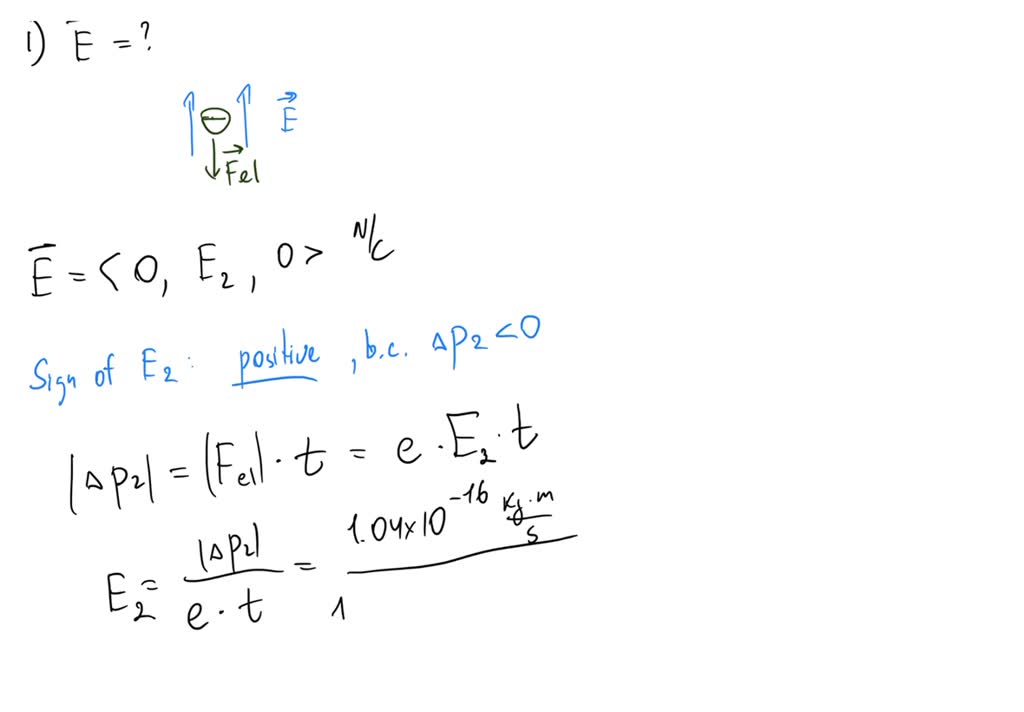 1) E⃗ = ?
E⃗
F⃗el
E⃗ = <0, E₂, 0> N/C
Sign of E₂: positive, b.c. Δp₂<0
|Δp₂| = |Fel| · t = e · E₂ · t
E₂ = |Δp₂| / e · t = 1.04×10⁻¹⁶ kg·m/s / 1